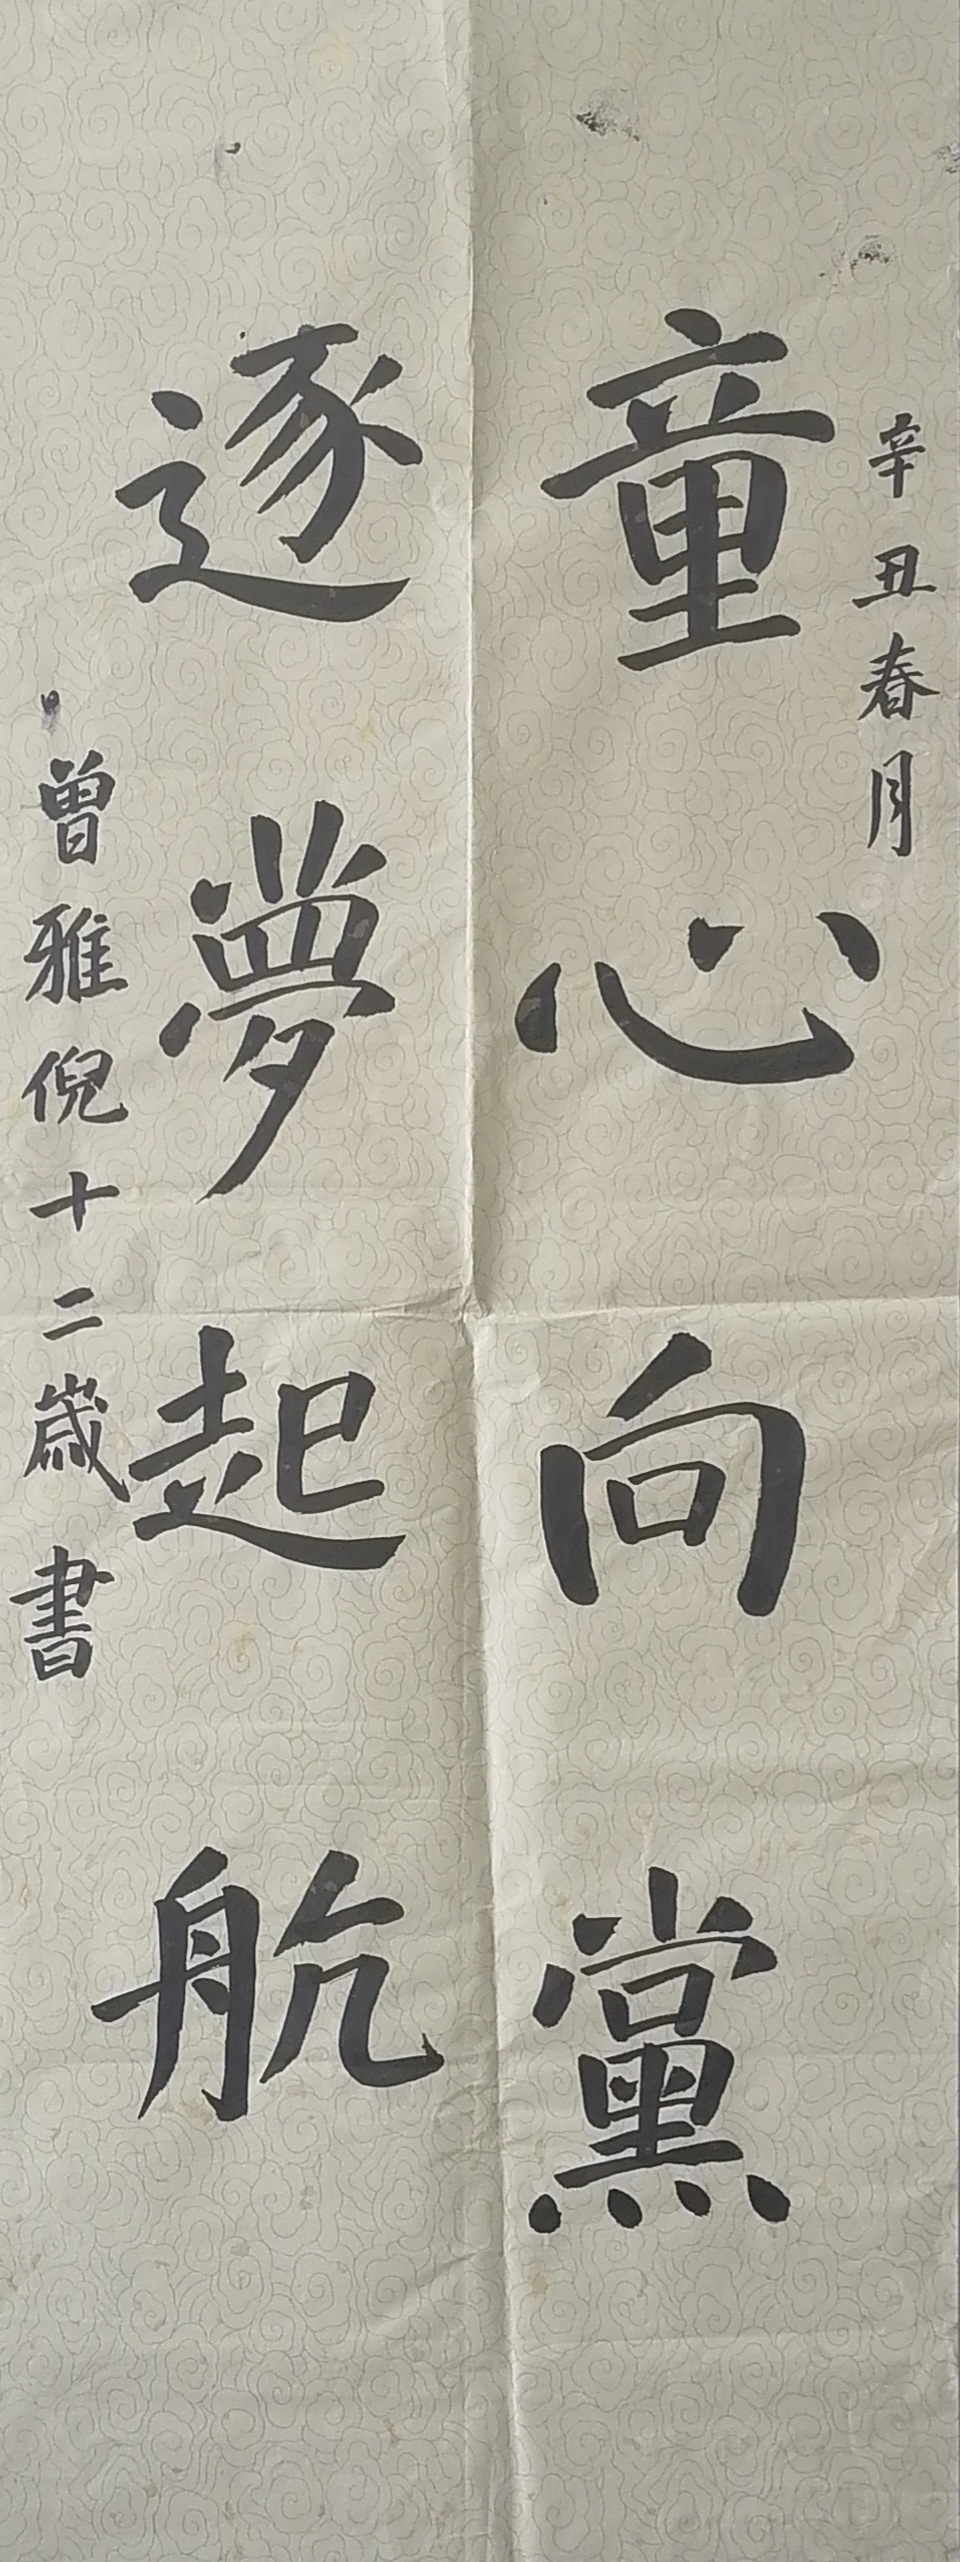 辛丑春月
童心向黨
逐夢起航
曾雅倪十二歲書